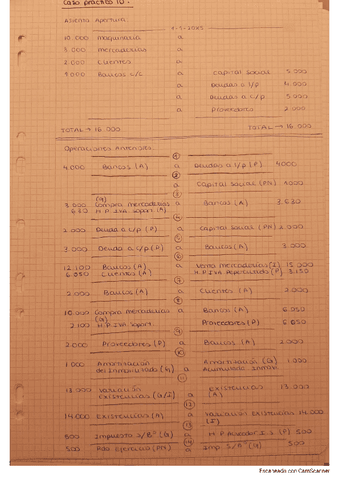 Caso práctico 10.
Asiento Apertura
10.000 maquinaria a
3.000 mercaderías a
2.000 Clientes a
Bancos c/c a Capital Social 5.000
a Deudas a l/p 4.000
a Deudas a c/p 5.000
a Proveedores 2.000
TOTAL → 16.000 TOTAL → 16.000
Operaciones
1
4.000 Bancos (A) a Deudas a l/p (P) 4000
2
a Capital Social (PN)
3
3.000 Compra mercaderías (G) a Bancos (A) 3.630
630 H.P. Iva Soport (A)
4
2.000 Deuda a c/p (P) a Capital Social (PN)
5
3.000 Deuda a c/p (P) a Bancos (A) 3.000
6
12.100 Bancos (A) a Venta mercaderías (I) 15.000
6.050 Clientes (A) H.P. Iva Repercutido (P) 3.150
7
2.000 Bancos (A) a Clientes (A) 2.000
8
10.000 Compra Mercaderías (G) a Bancos (A) 6.050
2.100 H.P. Iva Soport. Proveedores (P) 6.050
9
2.000 Proveedores (P) a Bancos (A) 2.000
10
1.000 Amortización del Inmovilizado a Amortización Acumulado Inmov. 1.000
11
13.000 Variación existencias (G/I) a Existencias (A) 13.000
12
14.000 Existencias (A) a Variación Existencias 14.000 (I)
13
500 Impuesto S/Bº (G) a H.P. Acreedor I.S (P) 500
14
500 Rdo Ejercicio (PN) a Imp. S/Bº (G) 500
Escaneado con CamScanner